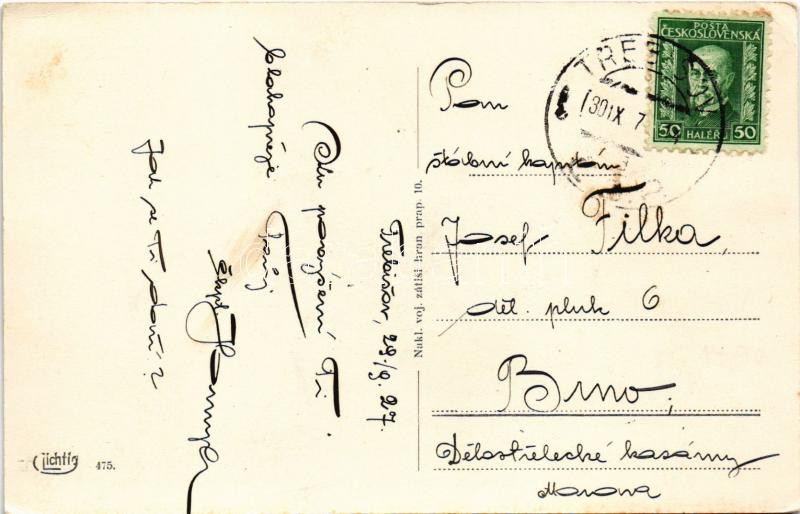 Trebišov, 29./9. 27.
Ku povýšení Ti
blahopřeje
Tvůj
škpt.
Jak se Ti daří?
Lichtig
475.
Nakl. voj. zátiší hran. prap. 10.
POŠTA
ČESKOSLOVENSKÁ
50 HALÉŘŮ 50
30 IX 27
Pan
štábní kapitán
Josef Filka,
děl. pluk 6
Brno,
Dělostřelecké kasárny
Morava